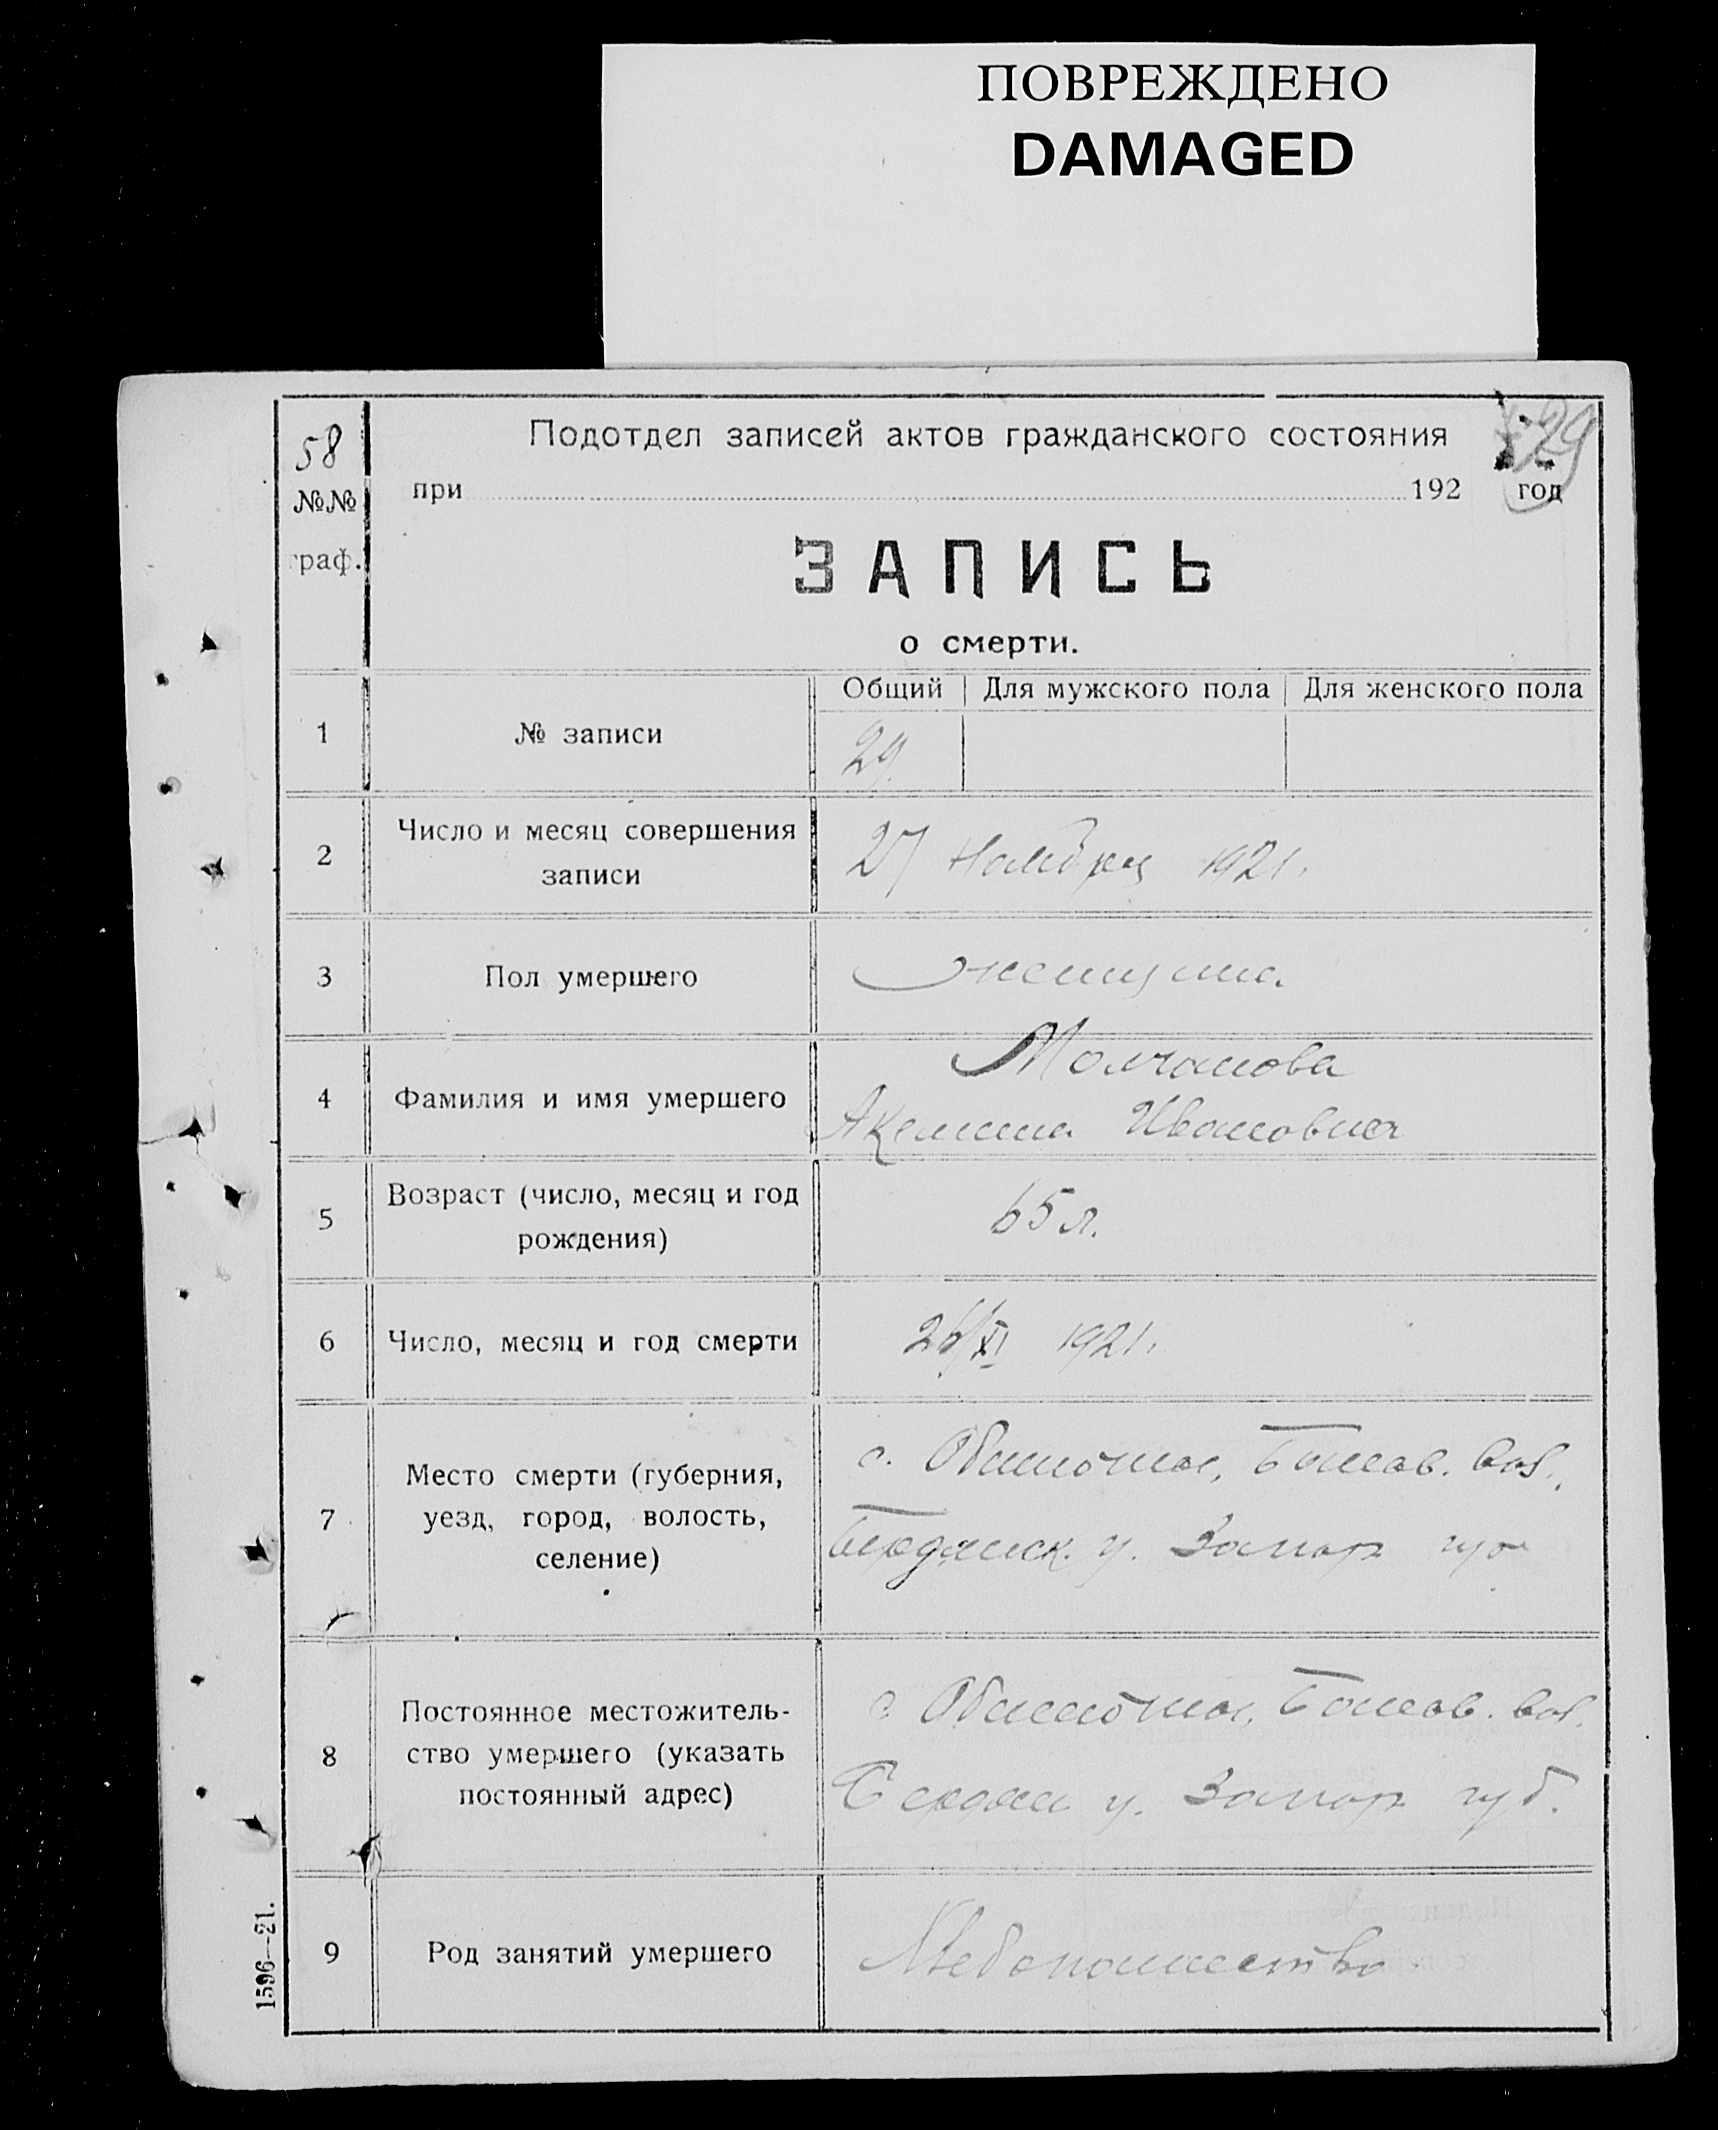 ПОВРЕЖДЕНО
DAMAGED
58
29
Подотдел записей актов гражданского состояния
№№
при 192 год
граф.
ЗАПИСЬ
о смерти.
Общий Для мужского пола Для женского пола
1 № записи 29.
2 Число и месяц совершения записи 27 Ноября 1921.
3 Пол умершего женщина.
4 Фамилия и имя умершего Молчанова
Акелина Ивановна
5 Возраст (число, месяц и год рождения) 65 л.
6 Число, месяц и год смерти 26/XI 1921.
7 Место смерти (губерния, уезд, город, волость, селение) с. Обиточное, вол.,
Бердянск. у. Запор губ
8 Постоянное местожитель-
ство умершего (указать постоянный адрес) с Обиточное, вол.
Бердян у. Запор губ.
9 Род занятий умершего
1596—21.